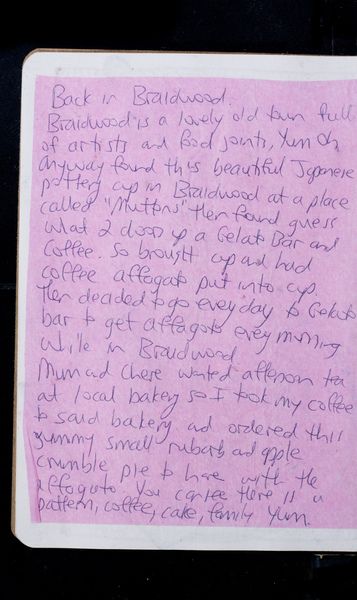 Back in Braidwood.
Braidwood is a lovely old town full
of artists and food joints, Yum Oh,
Anyway found this beautiful Japanese
pottery cup in Braidwood at a place
called "Muttons" then found guess
what 2 doors up a Gelato Bar and
Coffee. So brought cup and had
coffee affagato put into cup.
Then decided to go everyday to Gelato
bar to get affagato every morning
while in Braidwood
Mum ad Chere wanted afternoon tea
at local bakery so I took my coffee
to said bakery ad ordered this
yummy small rubarb ad apple
crumble pie to have with the
affagato. You can see there is a
pattern, coffee, cake, family yum.